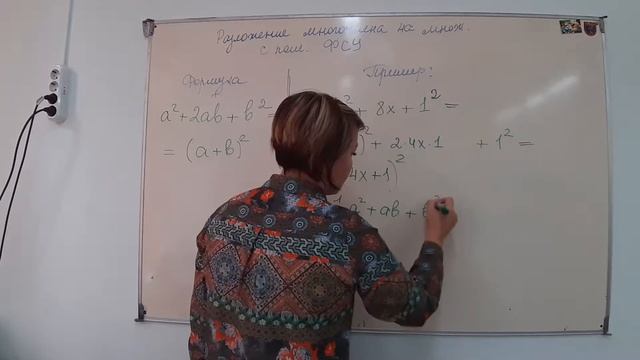 Разложение многочлена на множ.
с пом. ФСУ
Формула
Пример:
a² + 2ab + b² =
= (a + b)²
² + 8x + 1² =
)² + 2·4x·1 + 1² =
4x + 1)²
a² + ab + b²